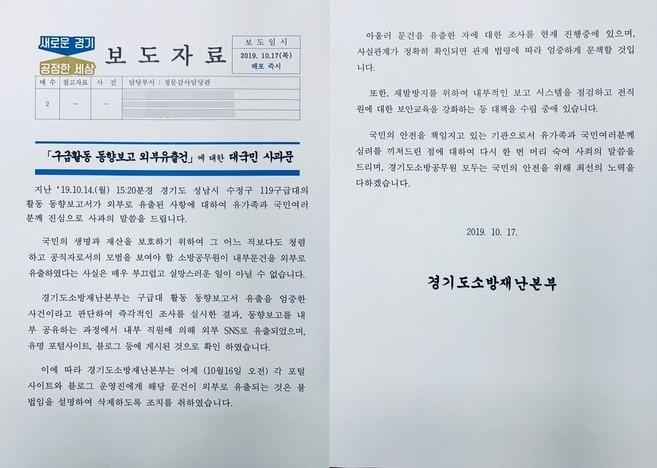 새로운 경기
공정한 세상
보도자료
보 도 일 시
2019. 10.17(목)
배포 즉시
매 수
참고자료
사 진
담당부서 : 청문감사담당관
2
-
-
「구급활동 동향보고 외부유출건」에 대한 대국민 사과문
지난 '19.10.14.(월) 15:20분경 경기도 성남시 수정구 119구급대의
활동 동향보고서가 외부로 유출된 사항에 대하여 유가족과 국민여러
분께 진심으로 사과의 말씀을 드립니다.
국민의 생명과 재산을 보호하기 위하여 그 어느 직보다도 청렴
하고 공직자로서의 모범을 보여야 할 소방공무원이 내부문건을 외부로
유출하였다는 사실은 매우 부끄럽고 실망스러운 일이 아닐 수 없습니다.
경기도소방재난본부는 구급대 활동 동향보고서 유출을 엄중한
사건이라고 판단하여 즉각적인 조사를 실시한 결과, 동향보고를 내
부 공유하는 과정에서 내부 직원에 의해 외부 SNS로 유출되었으며,
유명 포털사이트, 블로그 등에 게시된 것으로 확인 하였습니다.
이에 따라 경기도소방재난본부는 어제 (10월16일 오전) 각 포털
사이트와 블로그 운영진에게 해당 문건이 외부로 유출되는 것은 불
법임을 설명하여 삭제하도록 조치를 취하였습니다.
아울러 문건을 유출한 자에 대한 조사를 현재 진행중에 있으며,
사실관계가 정확히 확인되면 관계 법령에 따라 엄중하게 문책할 것입
니다.
또한, 재발방지를 위하여 내부적인 보고 시스템을 점검하고 전직
원에 대한 보안교육을 강화하는 등 대책을 수립 중에 있습니다.
국민의 안전을 책임지고 있는 기관으로서 유가족과 국민여러분께
심려를 끼쳐드린 점에 대하여 다시 한 번 머리 숙여 사죄의 말씀을
드리며, 경기도소방공무원 모두는 국민의 안전을 위해 최선의 노력을
다하겠습니다.
2019. 10. 17.
경기도소방재난본부